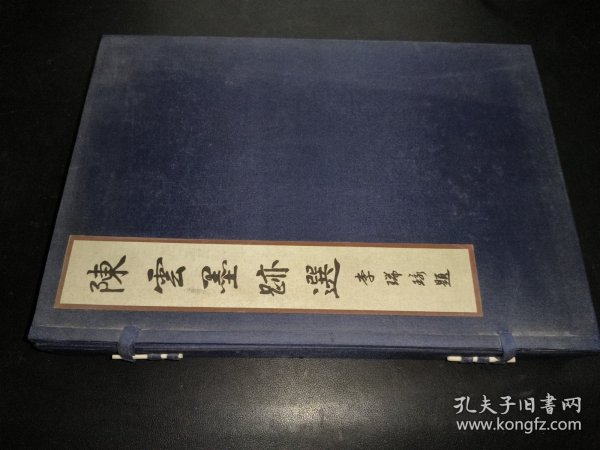 陳雲墨跡選
李琋瑜題
孔夫子旧書网
www.kongfz.com